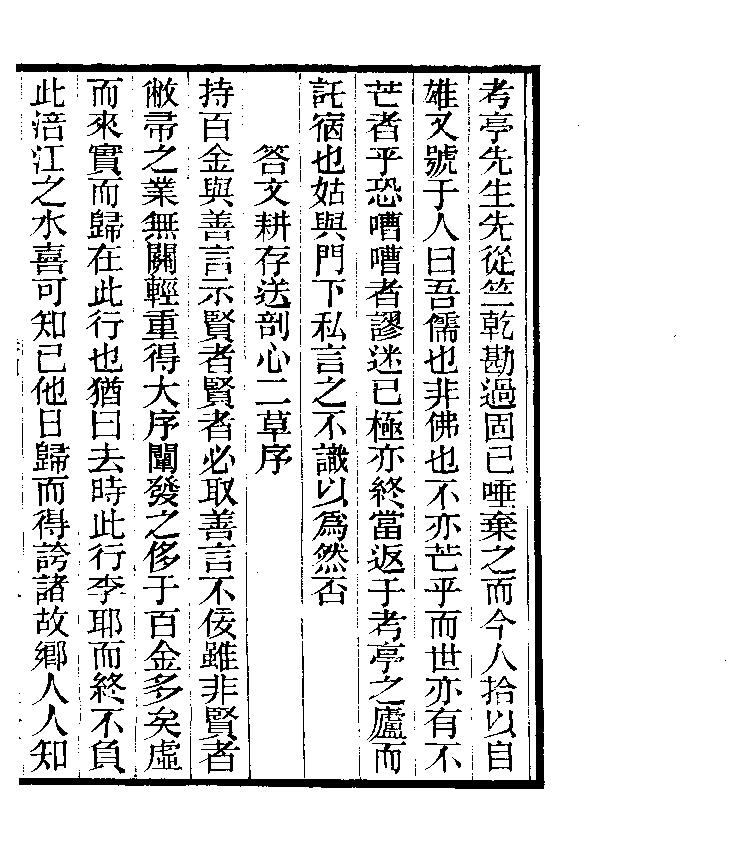 考亭先生先從竺乾勘過固已唾棄之而今人拾以自
雄又號于人曰吾儒也非佛也不亦芒乎而世亦有不
芒者乎恐嘈嘈者謬迷已極亦終當返于考亭之廬而
託宿也姑與門下私言之不識以爲然否
答文耕存送剖心二草序
持百金與善言示賢者賢者必取善言不佞雖非賢者
敝帚之業無關輕重得大序闡發之侈于百金多矣虛
而來實而歸在此行也猶曰去時此行李耶而終不負
此涪江之水喜可知已他日歸而得誇諸故鄉人人知